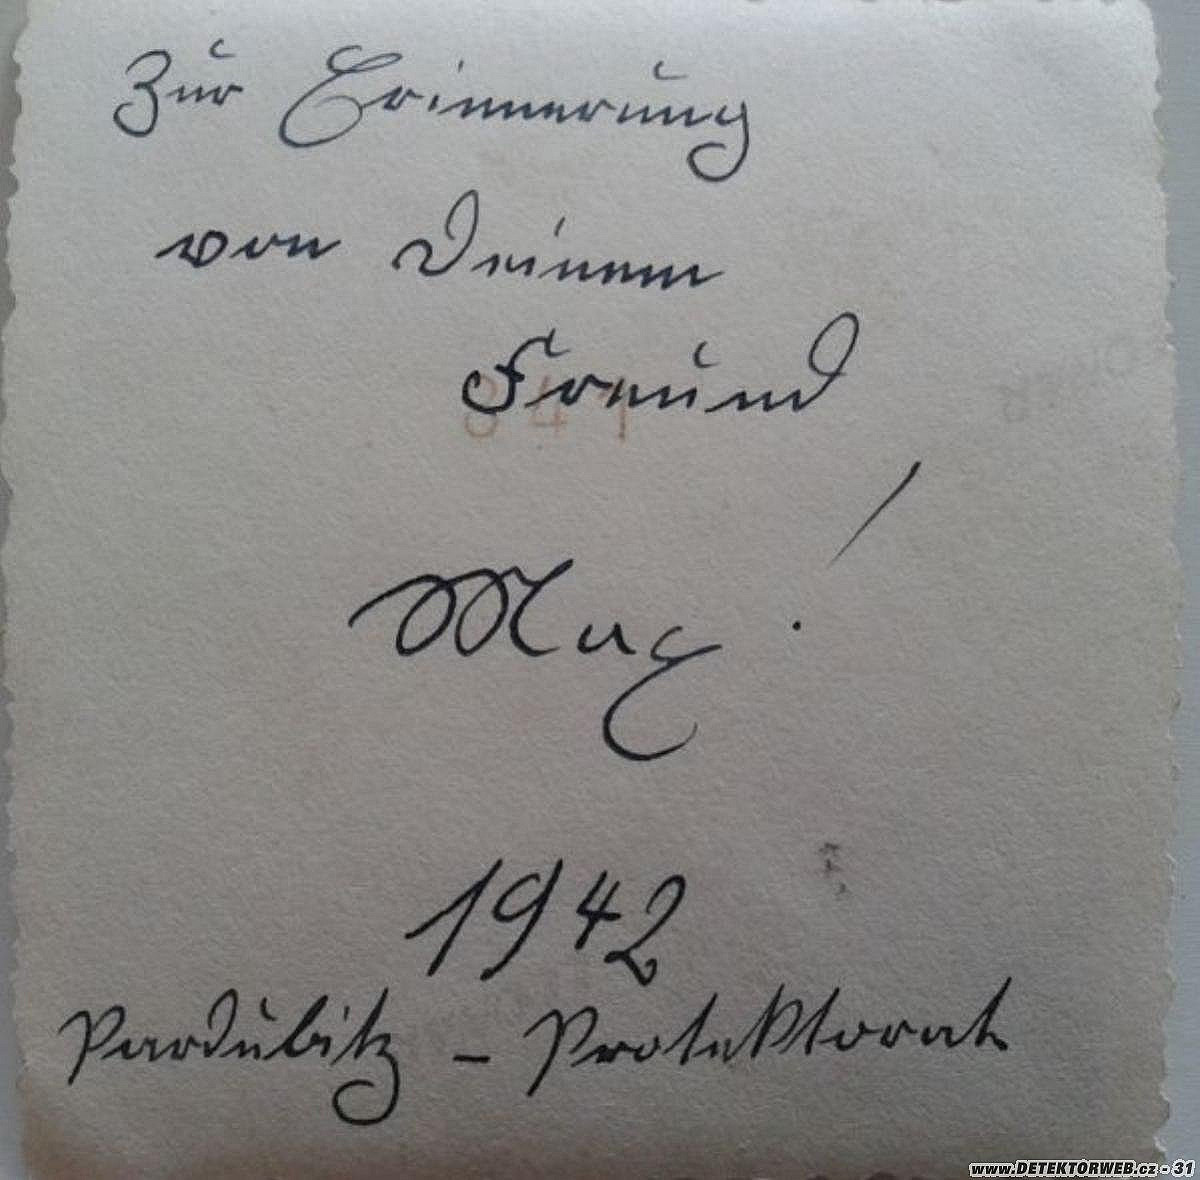 Zur Erinnerung
von Deinem
Freund
847
Max!
1942
Pardubitz – Protektorat
www.DETEKTORWEB.cz - 31